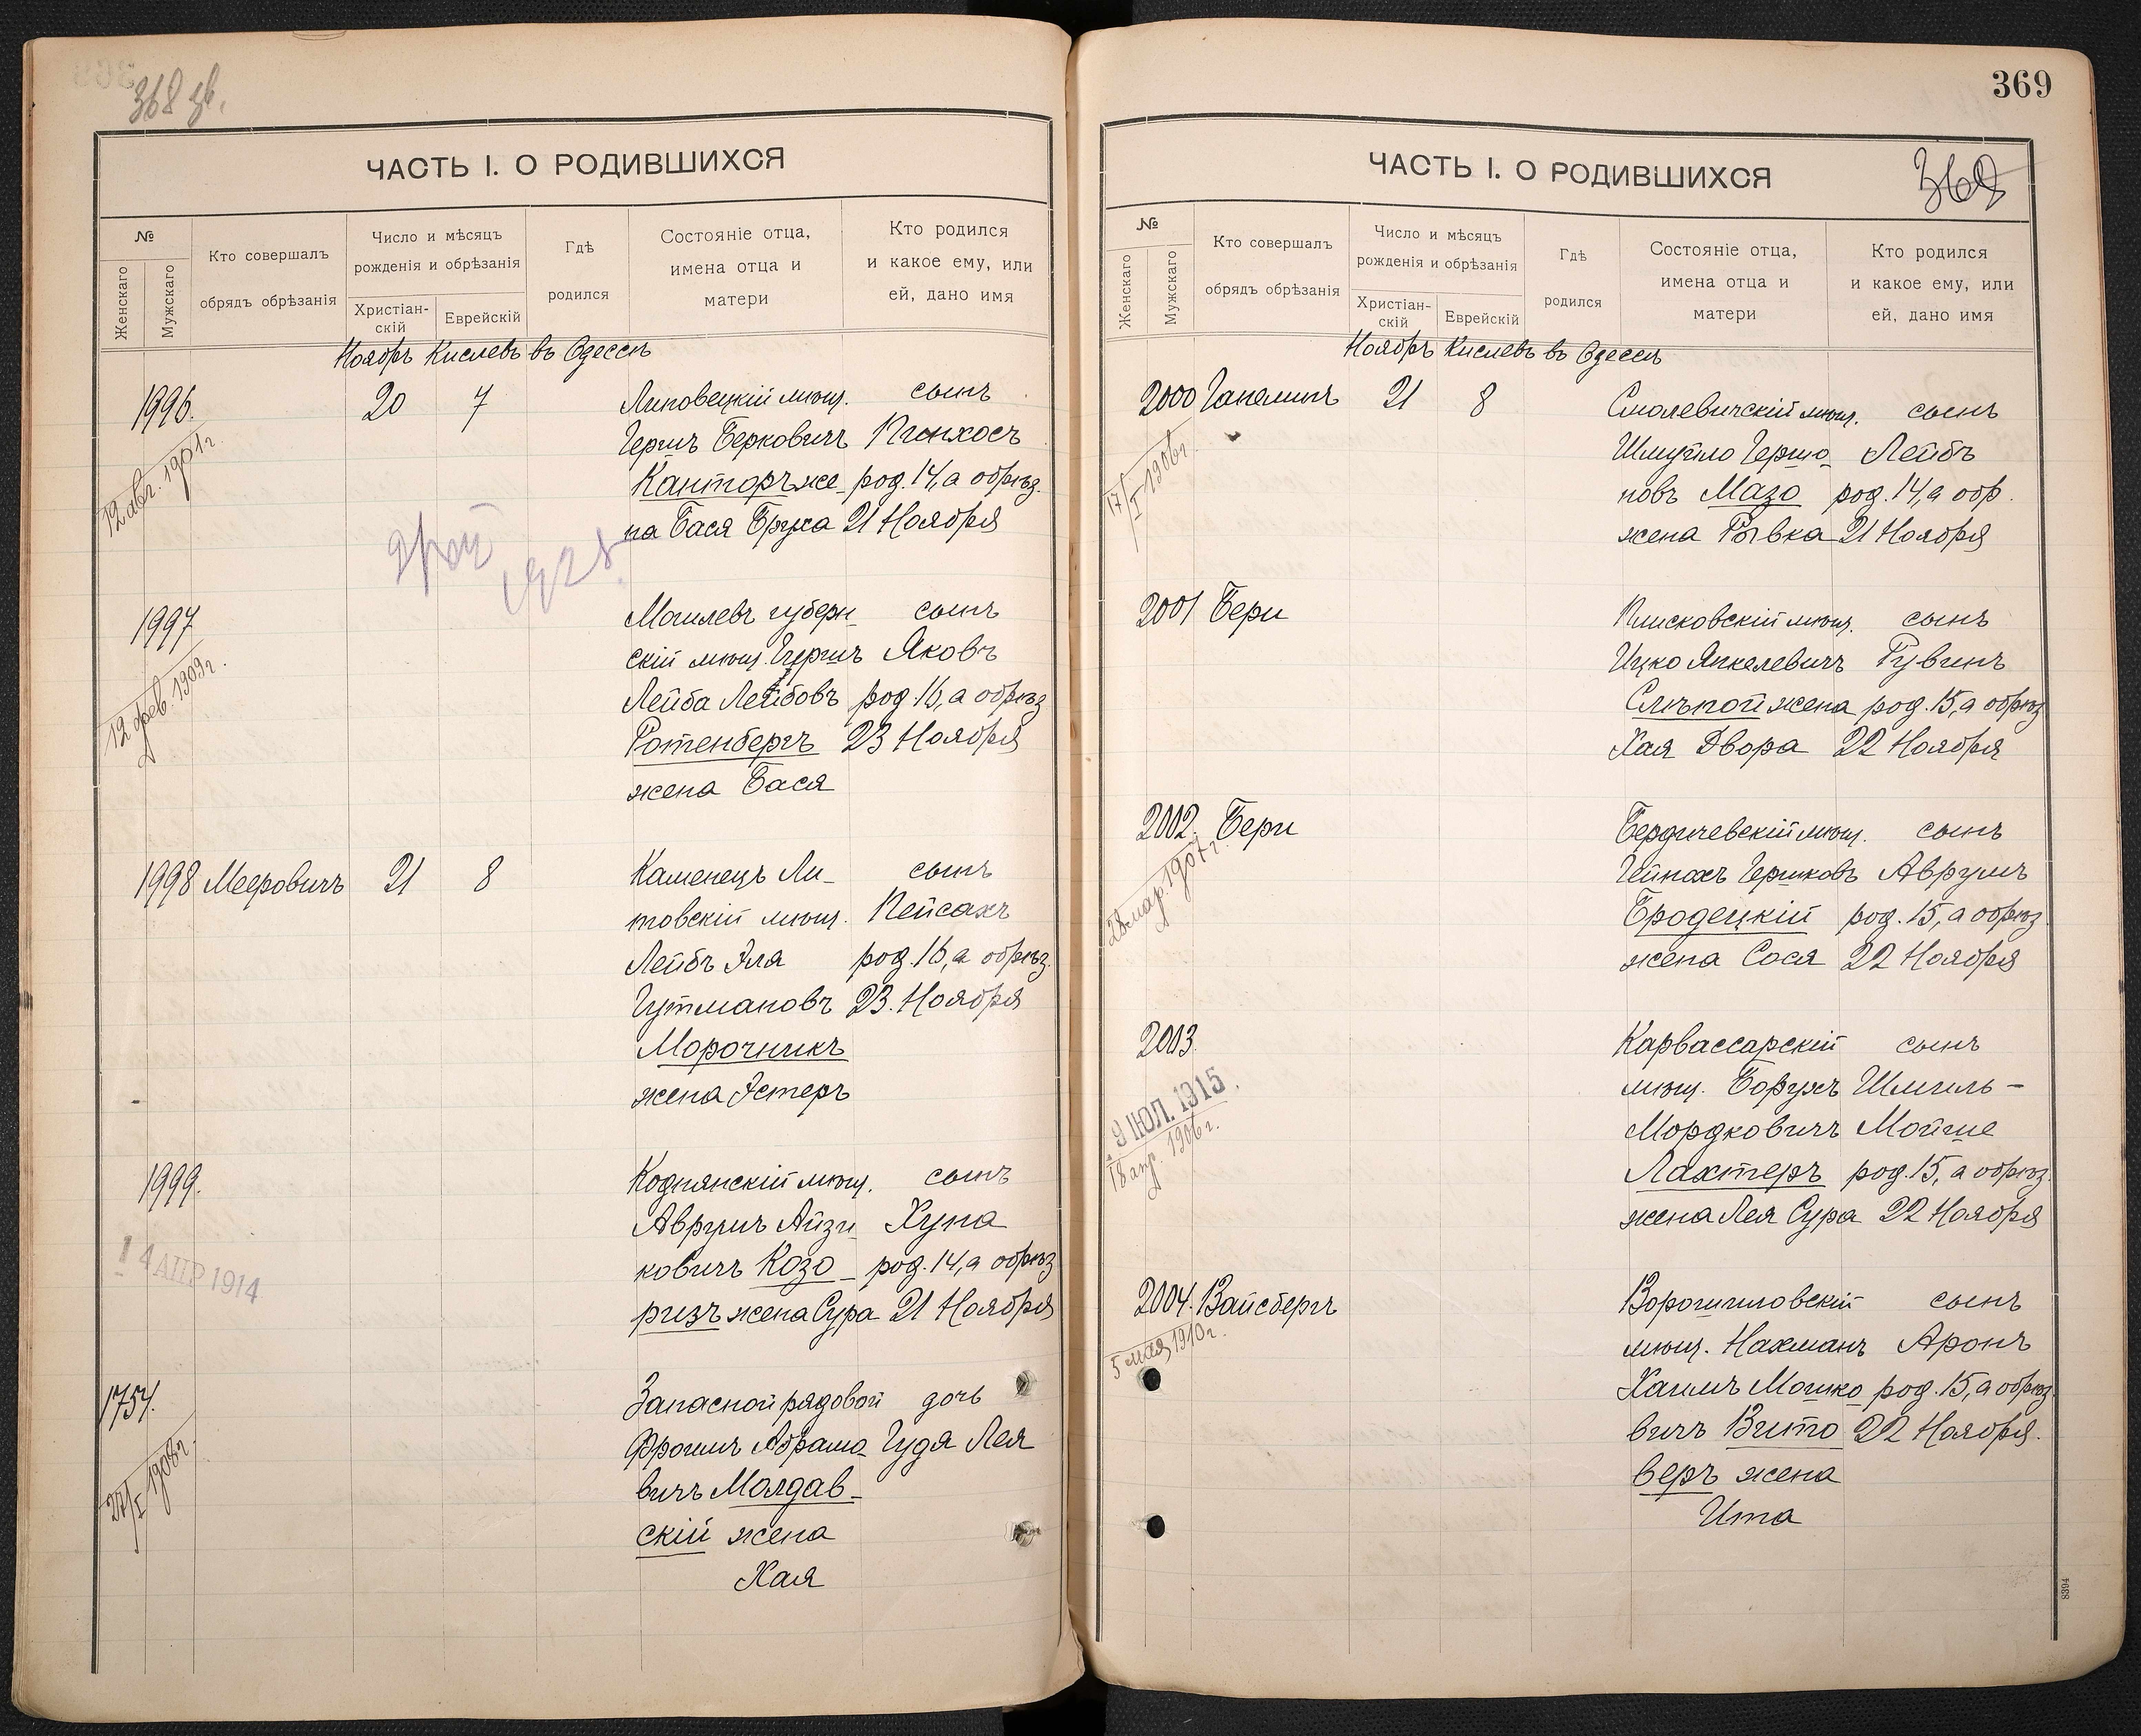 368 зв.
ЧАСТЬ I. О РОДИВШИХСЯ
№
Женскаго
Мужскаго
Кто совершалъ
обрядъ обрѣзанія
Число и мѣсяцъ
рожденія и обрѣзанія
Христіан-
скій
Еврейскій
Гдѣ
родился
Состояніе отца,
имена отца и
матери
Кто родился
и какое ему, или
ей, дано имя
Ноябрь Кислевъ въ Одессѣ
1996. 20 7 Липовецкій мѣщ. сынъ
Гершъ Берковичъ Пинхосъ
Канторъ же- род. 14, а обрѣз.
на Бася Бруха 21 Ноября
12 авг. 1901 г.
1928.
1997 Могилевъ губерн- сынъ
скій мѣщ. Гершъ Яковъ
Лейба Лейбовъ род. 16, а обрѣз
Ротенбергъ 23 Ноября
жена Бася
12 фев. 1909 г.
1998 Мееровичъ 21 8 Каменецъ Ли- сынъ
товскій мѣщ. Пейсахъ
Лейбъ Эля род. 16, а обрѣз.
Гутмановъ 23. Ноября
Морочникъ
жена Эстеръ
1999. Коднянскій мѣщ. сынъ
Аврумъ Айзи- Хуна
ковичъ Козо- род. 14, а обрѣз
ризъ жена Сура 21 Ноября
14 АПР 1914
1754. Запасной рядовой дочь
Фроимъ Абрамо- Гудя Лея
вичъ Молдав-
скій жена
Хая
27/I 1908 г.
369
ЧАСТЬ I. О РОДИВШИХСЯ
369
№
Женскаго
Мужскаго
Кто совершалъ
обрядъ обрѣзанія
Число и мѣсяцъ
рожденія и обрѣзанія
Христіан-
скій
Еврейскій
Гдѣ
родился
Состояніе отца,
имена отца и
матери
Кто родился
и какое ему, или
ей, дано имя
Ноябрь Кислевъ въ Одессѣ
2000 Ганелинъ 21 8 Смолевичскій мѣщ. сынъ
Шмуйло Гершо- Лейбъ
новъ Мазо род. 14, а обр.
жена Рывка 21 Ноября
17/I 1906 г.
2001 Бери Плисковскій мѣщ. сынъ
Ицко Янкелевичъ Рувинъ
Слѣпой жена род. 15, а обрѣз
Хая Двора 22 Ноября
2002. Бери Бердичевскій мѣщ. сынъ
Гейнохъ Гершковъ Аврумъ
Бродецкій род. 15, а обрѣз.
жена Сося 22 Ноября
28 мар. 1907 г.
2003. Карвассарскій сынъ
мѣщ. Борухъ Шмиль-
Мордковичъ Мойше
Лахтеръ род. 15, а обрѣз.
жена Лея Сура 22 Ноября
9 ЮЛ. 1915.
18 апр. 1906 г.
2004. Вайсбергъ Ворошиловскій сынъ
мѣщ. Нахманъ Аронъ
Хаимъ Мошко- род. 15, а обрѣз.
вичъ Вито- 22 Ноября.
веръ жена
Ита
5 мая 1910 г.
8394